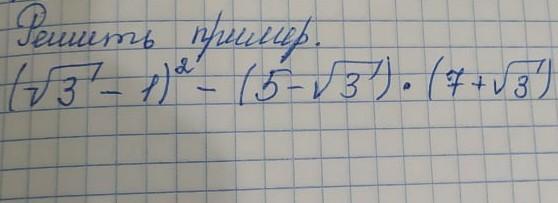 Решить пример.
(√3 - 1)² - (5 - √3) · (7 + √3)